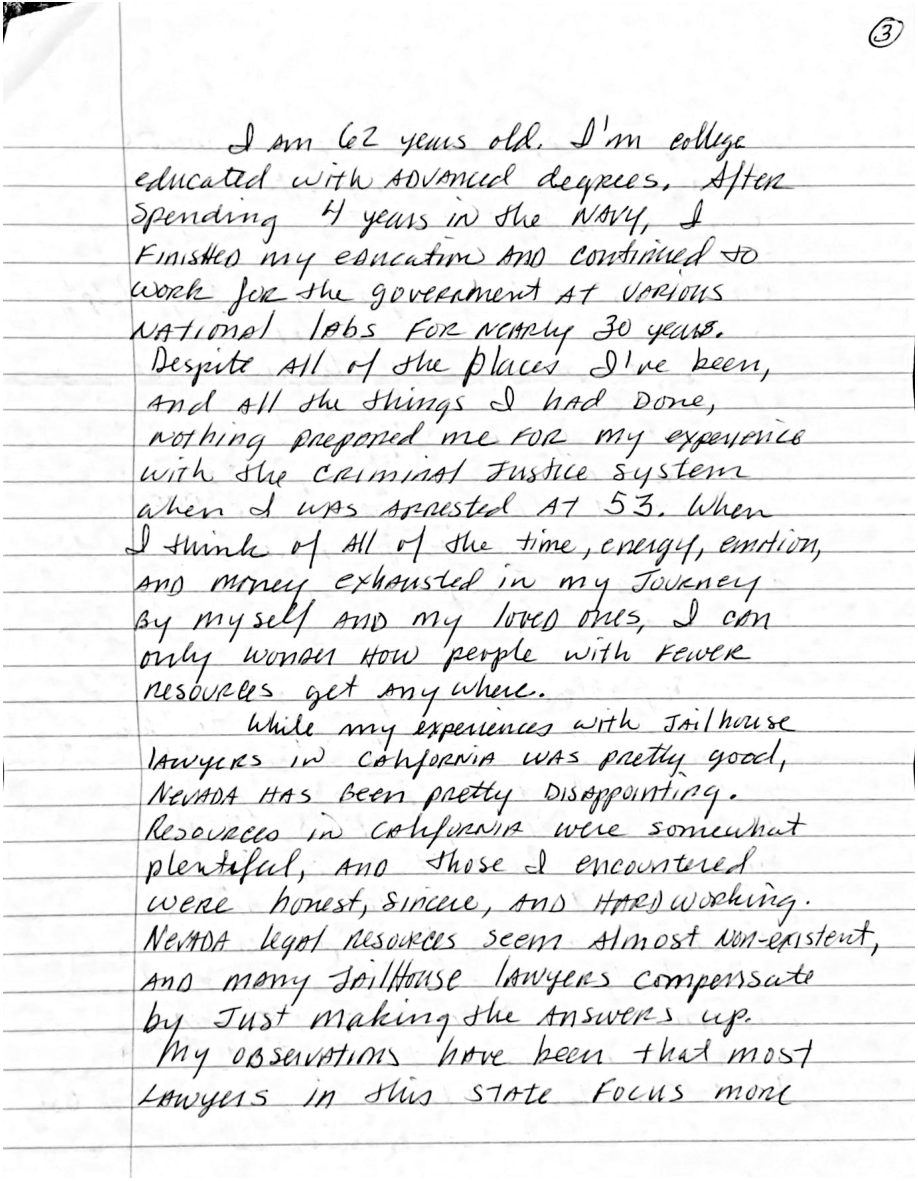 3
I am 62 years old. I'm college
educated with advanced degrees. After
spending 4 years in the Navy, I
finished my education and continued to
work for the government at various
national labs for nearly 30 years.
Despite all of the places I've been,
and all the things I had done,
nothing prepared me for my experience
with the criminal justice system
when I was arrested at 53. When
I think of all of the time, energy, emotion,
and money exhausted in my journey
by myself and my loved ones, I can
only wonder how people with fewer
resources get anywhere.
While my experiences with jailhouse
lawyers in California was pretty good,
Nevada has been pretty disappointing.
Resources in California were somewhat
plentiful, and those I encountered
were honest, sincere, and hardworking.
Nevada legal resources seem almost non-existent,
and many jailhouse lawyers compensate
by just making the answers up.
My observations have been that most
lawyers in this state focus more